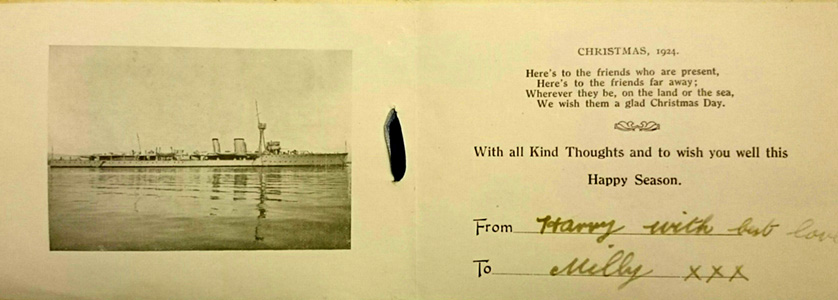 CHRISTMAS, 1924.
Here's to the friends who are present,
Here's to the friends far away;
Wherever they be, on the land or the sea,
We wish them a glad Christmas Day.
With all Kind Thoughts and to wish you well this
Happy Season.
From Harry with best love
To Milly xxx